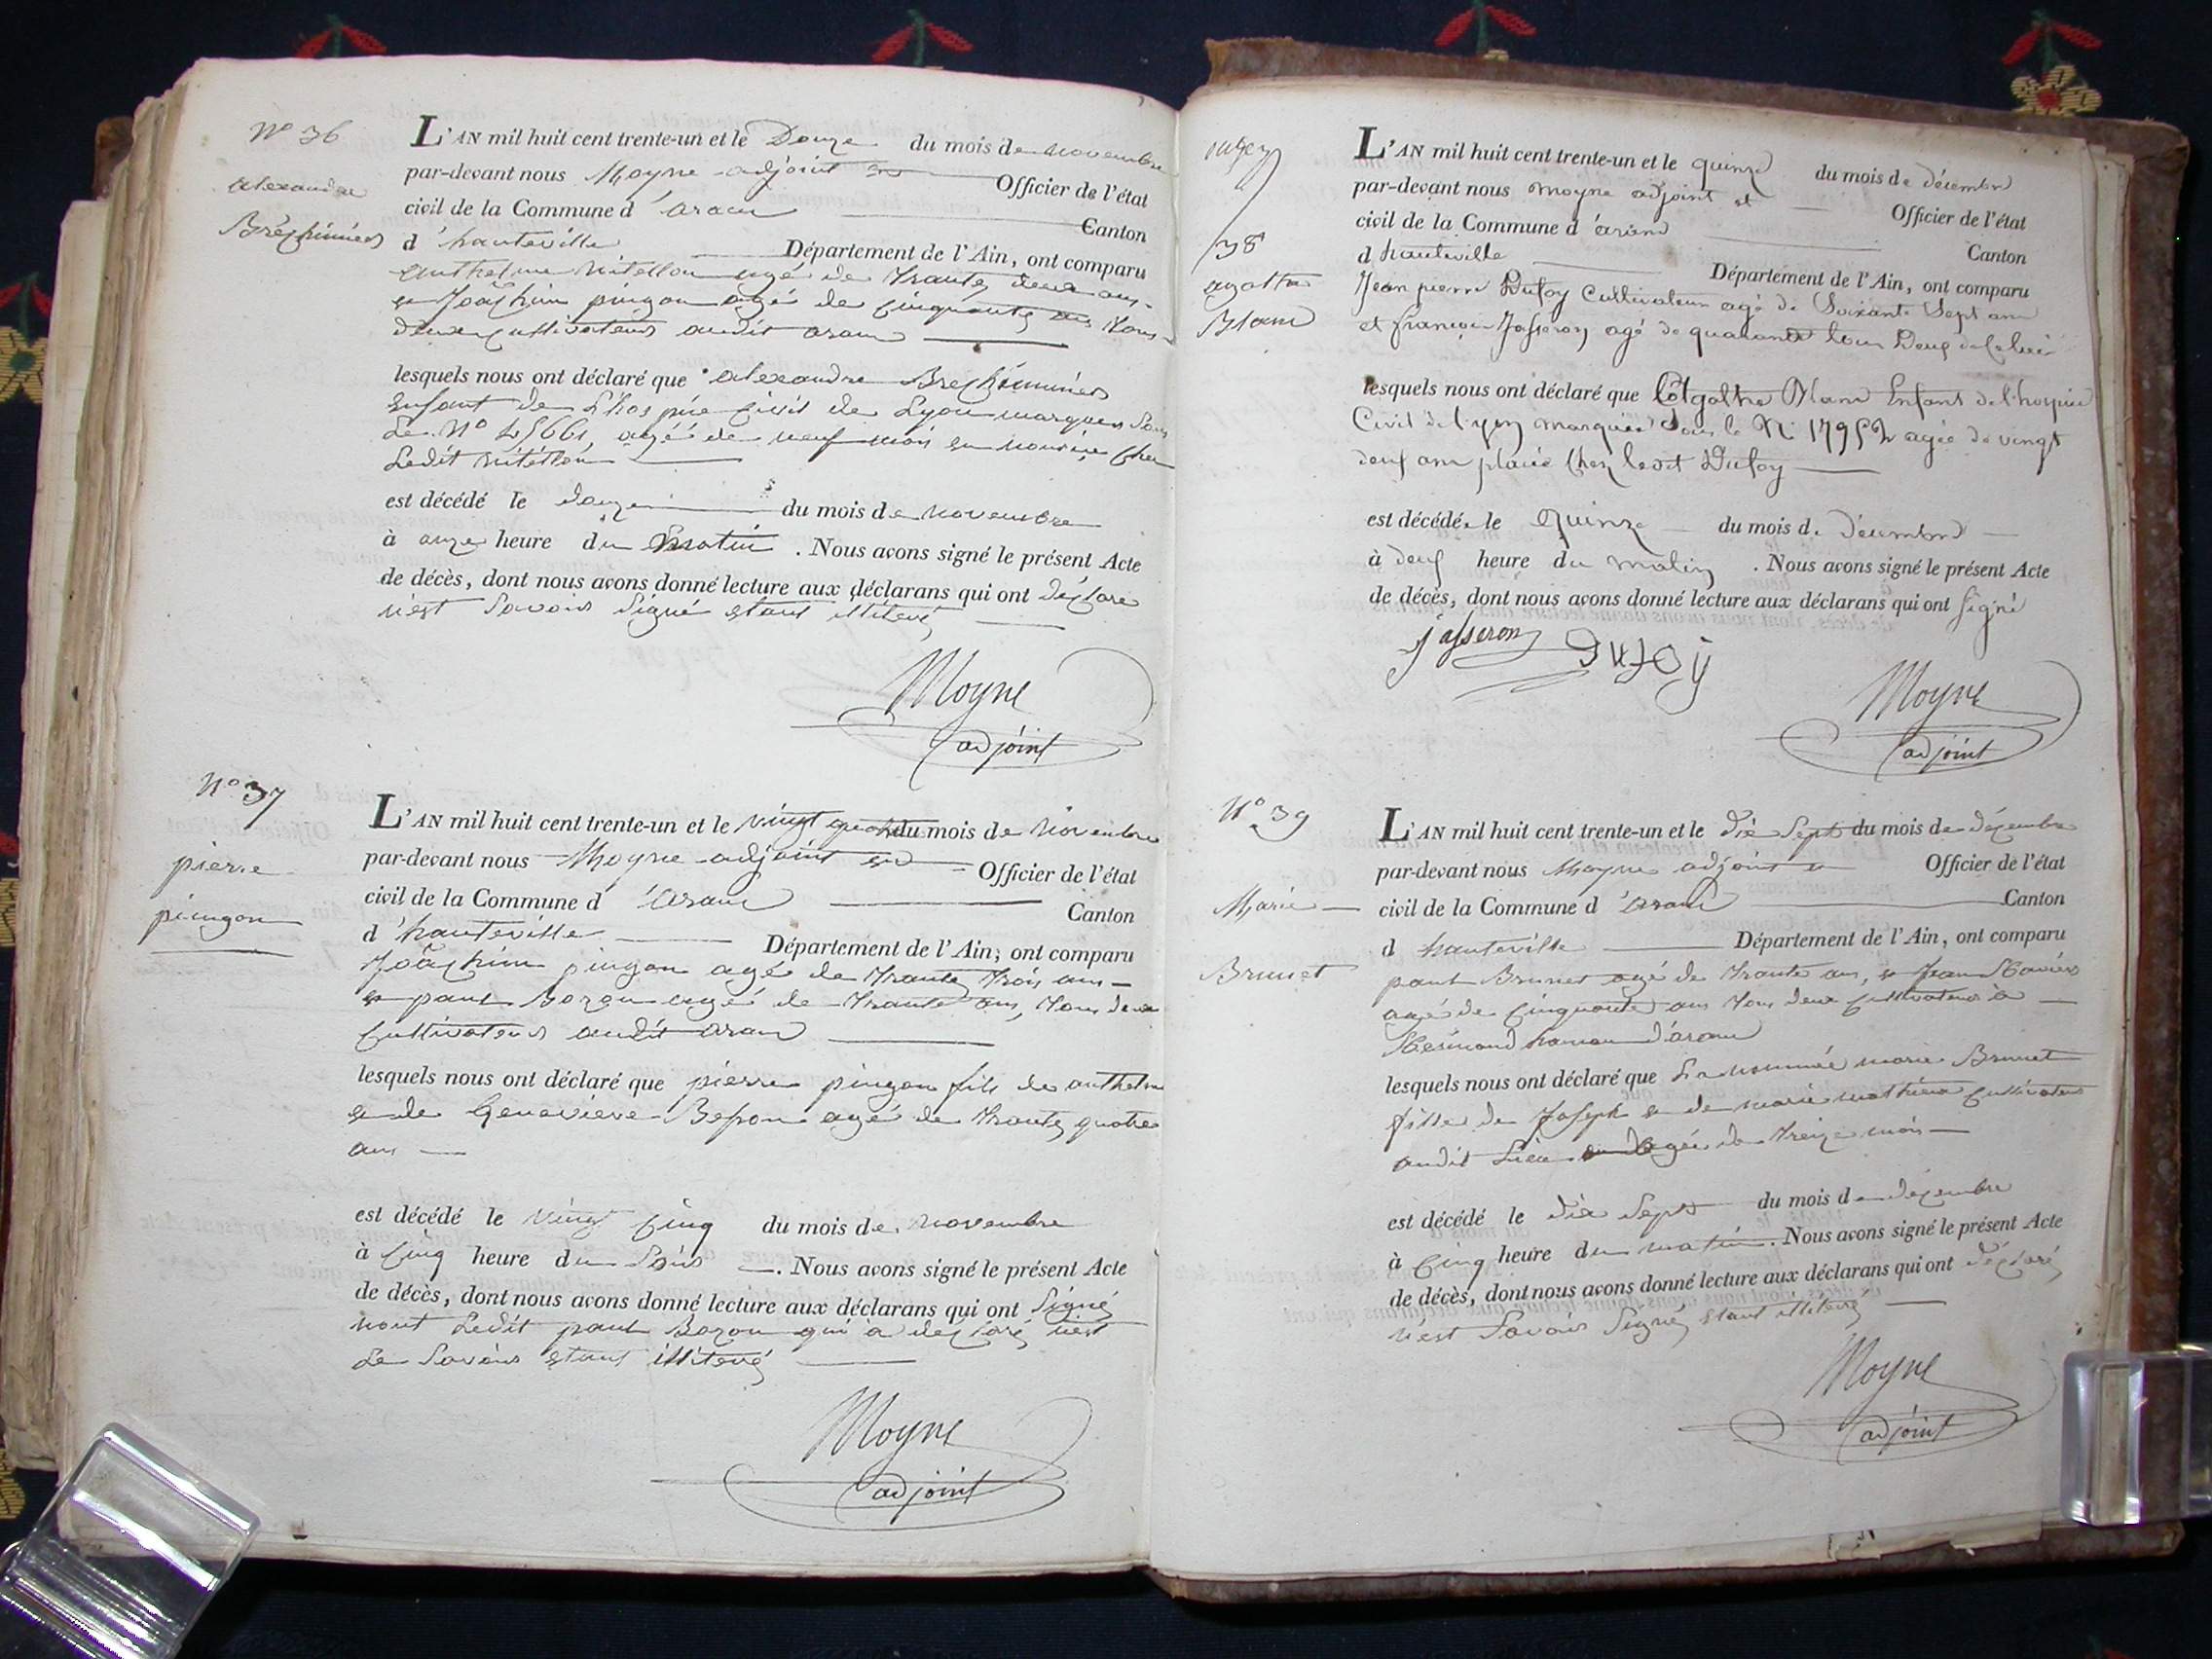 N° 36
alexandre
L'AN mil huit cent trente-un et le Douze du mois de novembre
par-devant nous Moyne adjoint Officier de l'état
civil de la Commune d' aranc Canton
d' hauteville Département de l'Ain, ont comparu
anthelme agé de trante deux ans
et Joachim pingon agé de cinquante ans tous
deux cultivateurs audit aranc
lesquels nous ont déclaré que alexandre
Enfant de L'hospice civil de Lyon marquer sous
Le N° agéé de neuf mois en nourice chez
Ledit
est décédé le douze du mois de novembre
à onze heure du matin . Nous avons signé le présent Acte
de décès, dont nous avons donné lecture aux déclarans qui ont déclare
n'est Savoir Signé etant illiteré
Moyne
adjoint
N° 37
pierre
pingon
L'AN mil huit cent trente-un et le vingt du mois de Novembre
par-devant nous Moyne adjoint Officier de l'état
civil de la Commune d' aranc Canton
d' hauteville Département de l'Ain, ont comparu
Joachim pingon agé de trante trois ans
et paul Bozon agé de trante ans, tous deux
Cultivateurs audit aranc
lesquels nous ont déclaré que pierre pingon fils de anthelme
et de Genevieve Besson agé de trante quatre
ans
est décédé le vingt cinq du mois de novembre
à cinq heure du Soir . Nous avons signé le présent Acte
de décès, dont nous avons donné lecture aux déclarans qui ont Signé
nont Ledit paul Bozon qui a declaré n'est
Le Savoir etant illiteré
Moyne
adjoint
38
agathe
Blanc
L'AN mil huit cent trente-un et le quinze du mois de décembre
par-devant nous moyne adjoint et Officier de l'état
civil de la Commune d Canton
d hauteville Département de l'Ain, ont comparu
Jean pierre Dufoy Cultivateur agé de Soixante Sept ans
et françois Josseron agé de quarante tous Deux
lesquels nous ont déclaré que agathe Blanc Enfant de l'hospice
Civil de lyon marquée Sous le N° agée de vingt
deux ans placée chez ledit Dufoy
est décédée le Quinze du mois de décembre
à deux heure du matin . Nous avons signé le présent Acte
de décès, dont nous avons donné lecture aux déclarans qui ont signé
josseron Dufoy
Moyne
adjoint
N° 39
Marie
Brunet
L'AN mil huit cent trente-un et le dix Sept du mois de décembre
par-devant nous Moyne adjoint Officier de l'état
civil de la Commune d' aranc Canton
d hauteville Département de l'Ain, ont comparu
paul Brunet agé de trante ans, et Jean
agé de Cinquante ans tous deux Cultivateurs à
hamau d'aranc
lesquels nous ont déclaré que La nommée marie Brunet
fille de Joseph et de marie Cultivateur
audit Lieu agée de treize mois
est décédé le dix Sept du mois de décembre
à Cinq heure du matin . Nous avons signé le présent Acte
de décès, dont nous avons donné lecture aux déclarans qui ont déclaré
n'est Savoir Signé etant illiteré
Moyne
adjoint